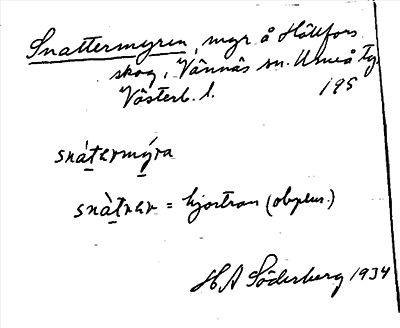 Snattermyren, myr å Hällfors
skog, Vännäs sn. Umeå tg
Västerb. l. 195
snátermýra
snàtrer = hjortron (obplur.)
H A Söderberg 1934